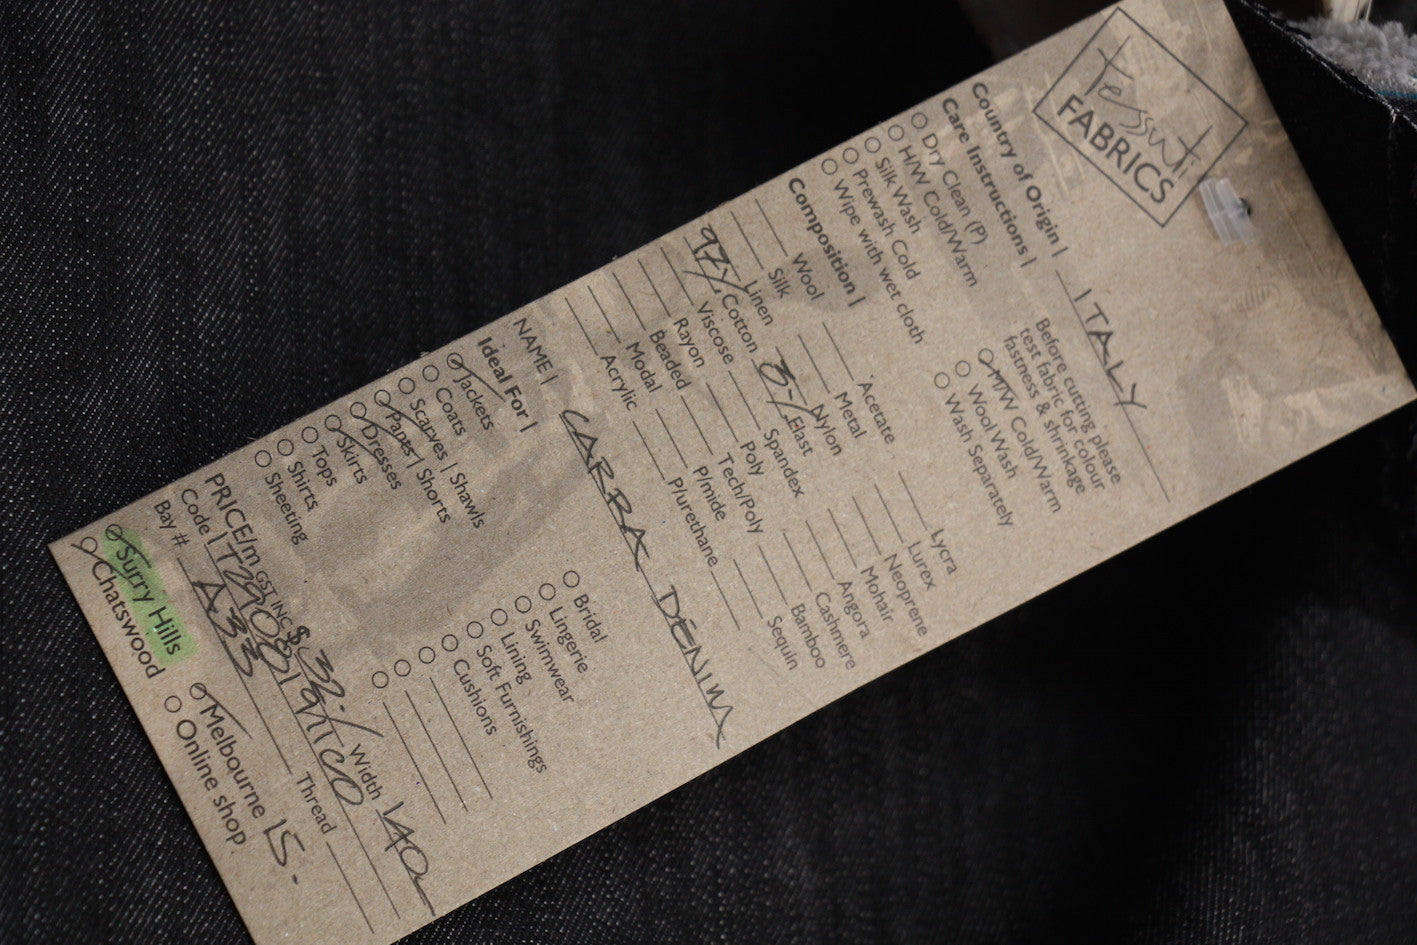 Tessuti
FABRICS
Country of Origin | ITALY
Care Instructions |
Before cutting please
test fabric for colour
fastness & shrinkage
Dry Clean (P)
H/W Cold/Warm
Silk Wash
Prewash Cold
Wipe with wet cloth
M/W Cold/Warm
Wool Wash
Wash Separately
Composition |
Wool Acetate Lycra
Silk Metal Lurex
Linen Nylon Neoprene
97% Cotton 3% Elast Mohair
Viscose Spandex Angora
Rayon Poly Cashmere
Beaded Tech/Poly Bamboo
Modal P/mide Sequin
Acrylic P/urethane
NAME | CARRA DENIM
Ideal For |
Jackets Bridal
Coats Lingerie
Scarves | Shawls Swimwear
Pants | Shorts Lining
Dresses Soft Furnishings
Skirts Cushions
Tops
Shirts
Sheeting
PRICE/m GST INC $ Width 140
Code |
Bay # A33 Thread
Surry Hills Melbourne 15.
Chatswood Online shop